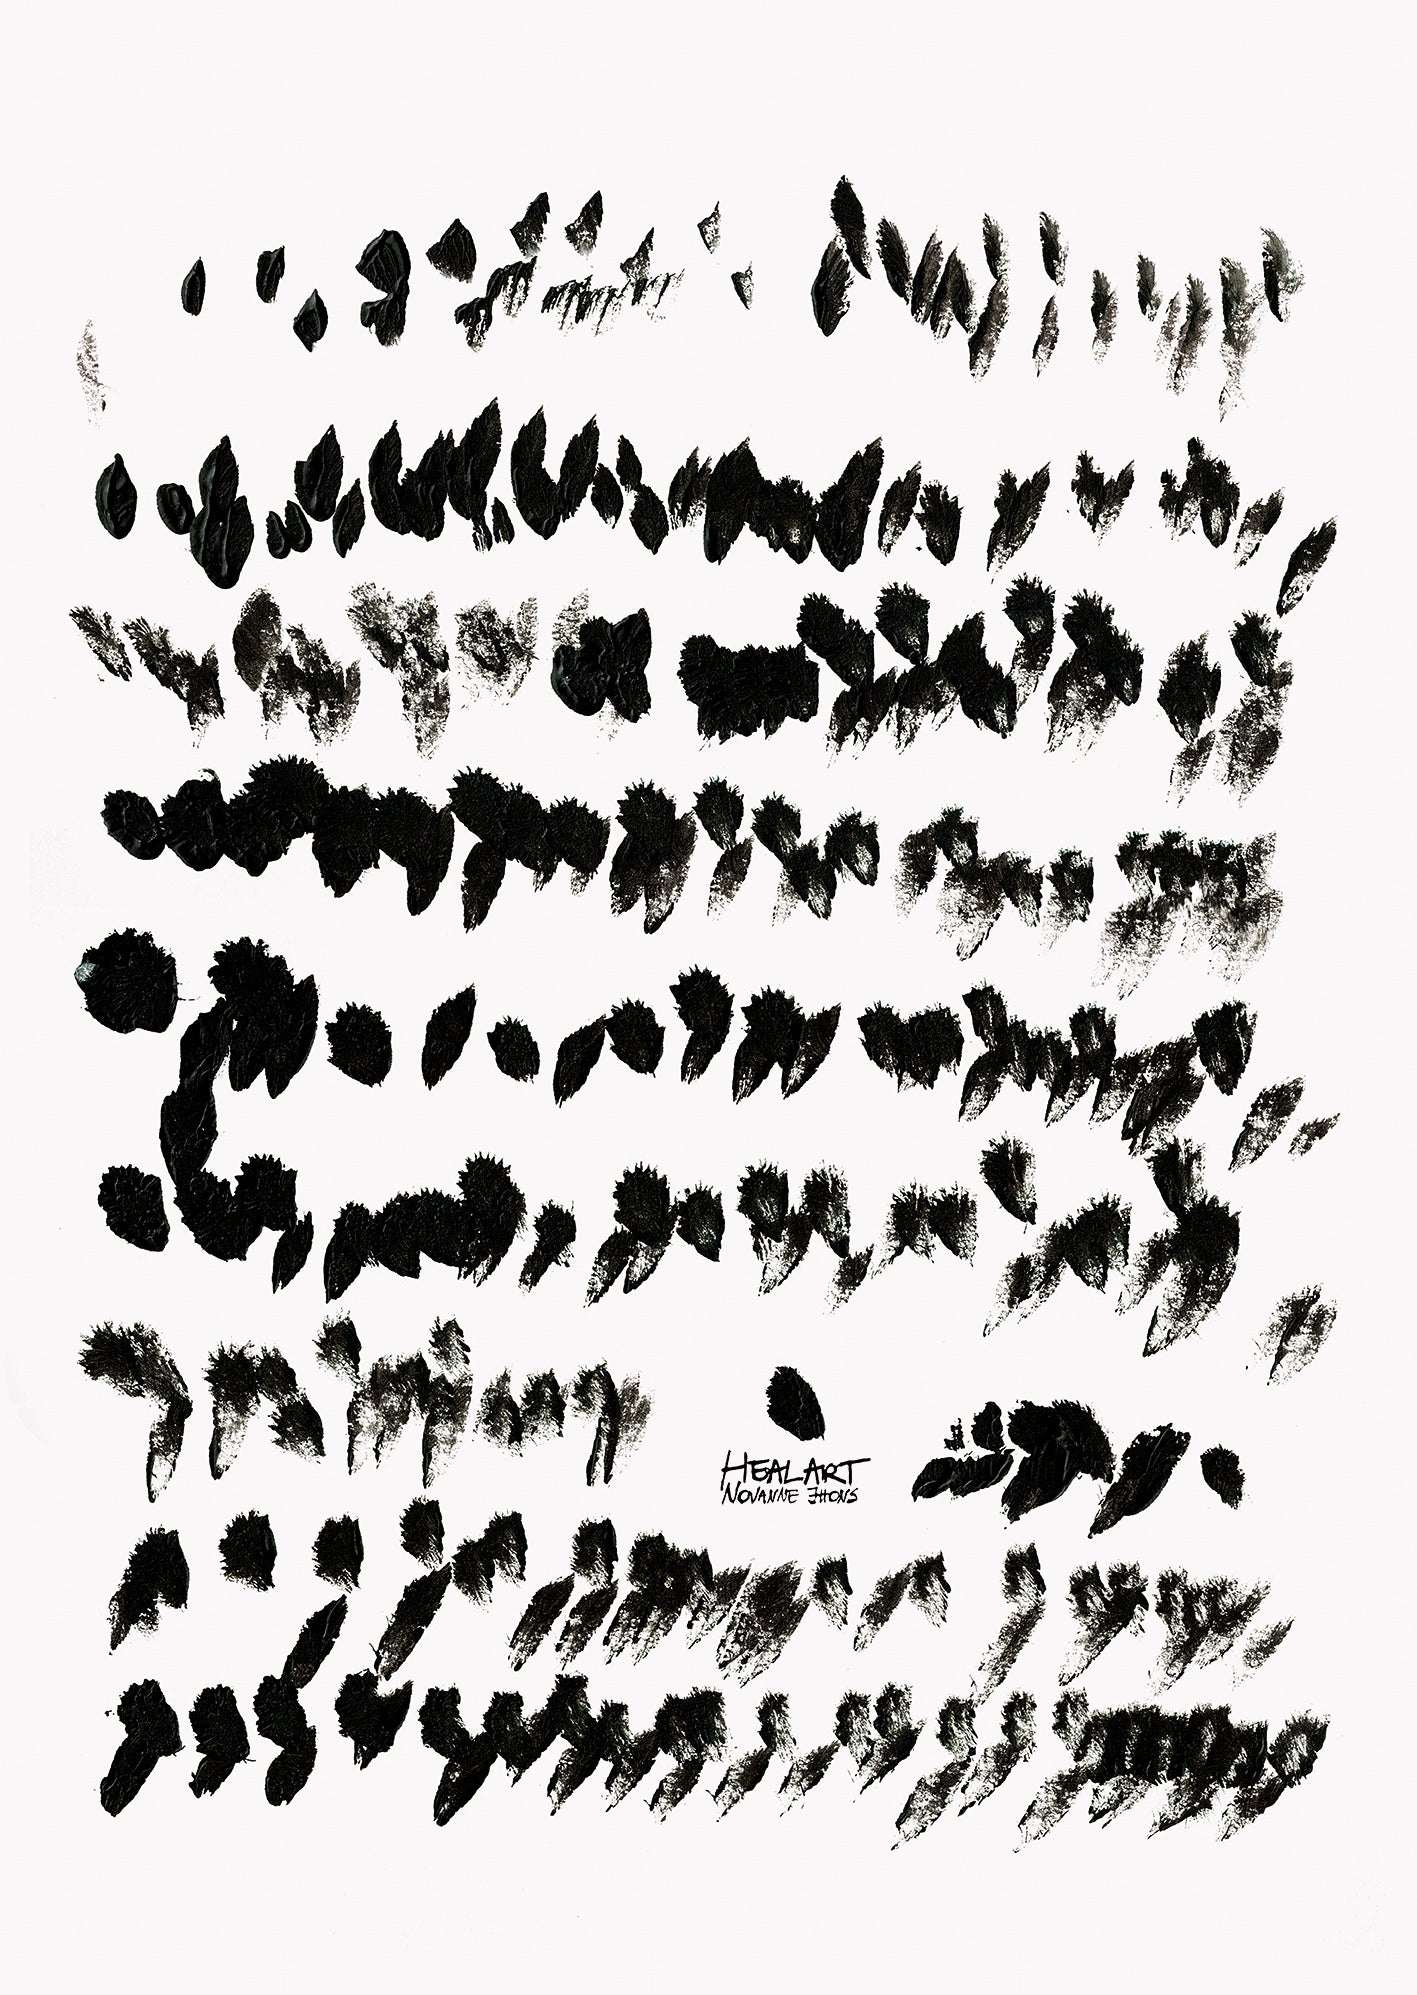 HEALART
NOVANNE JHONS